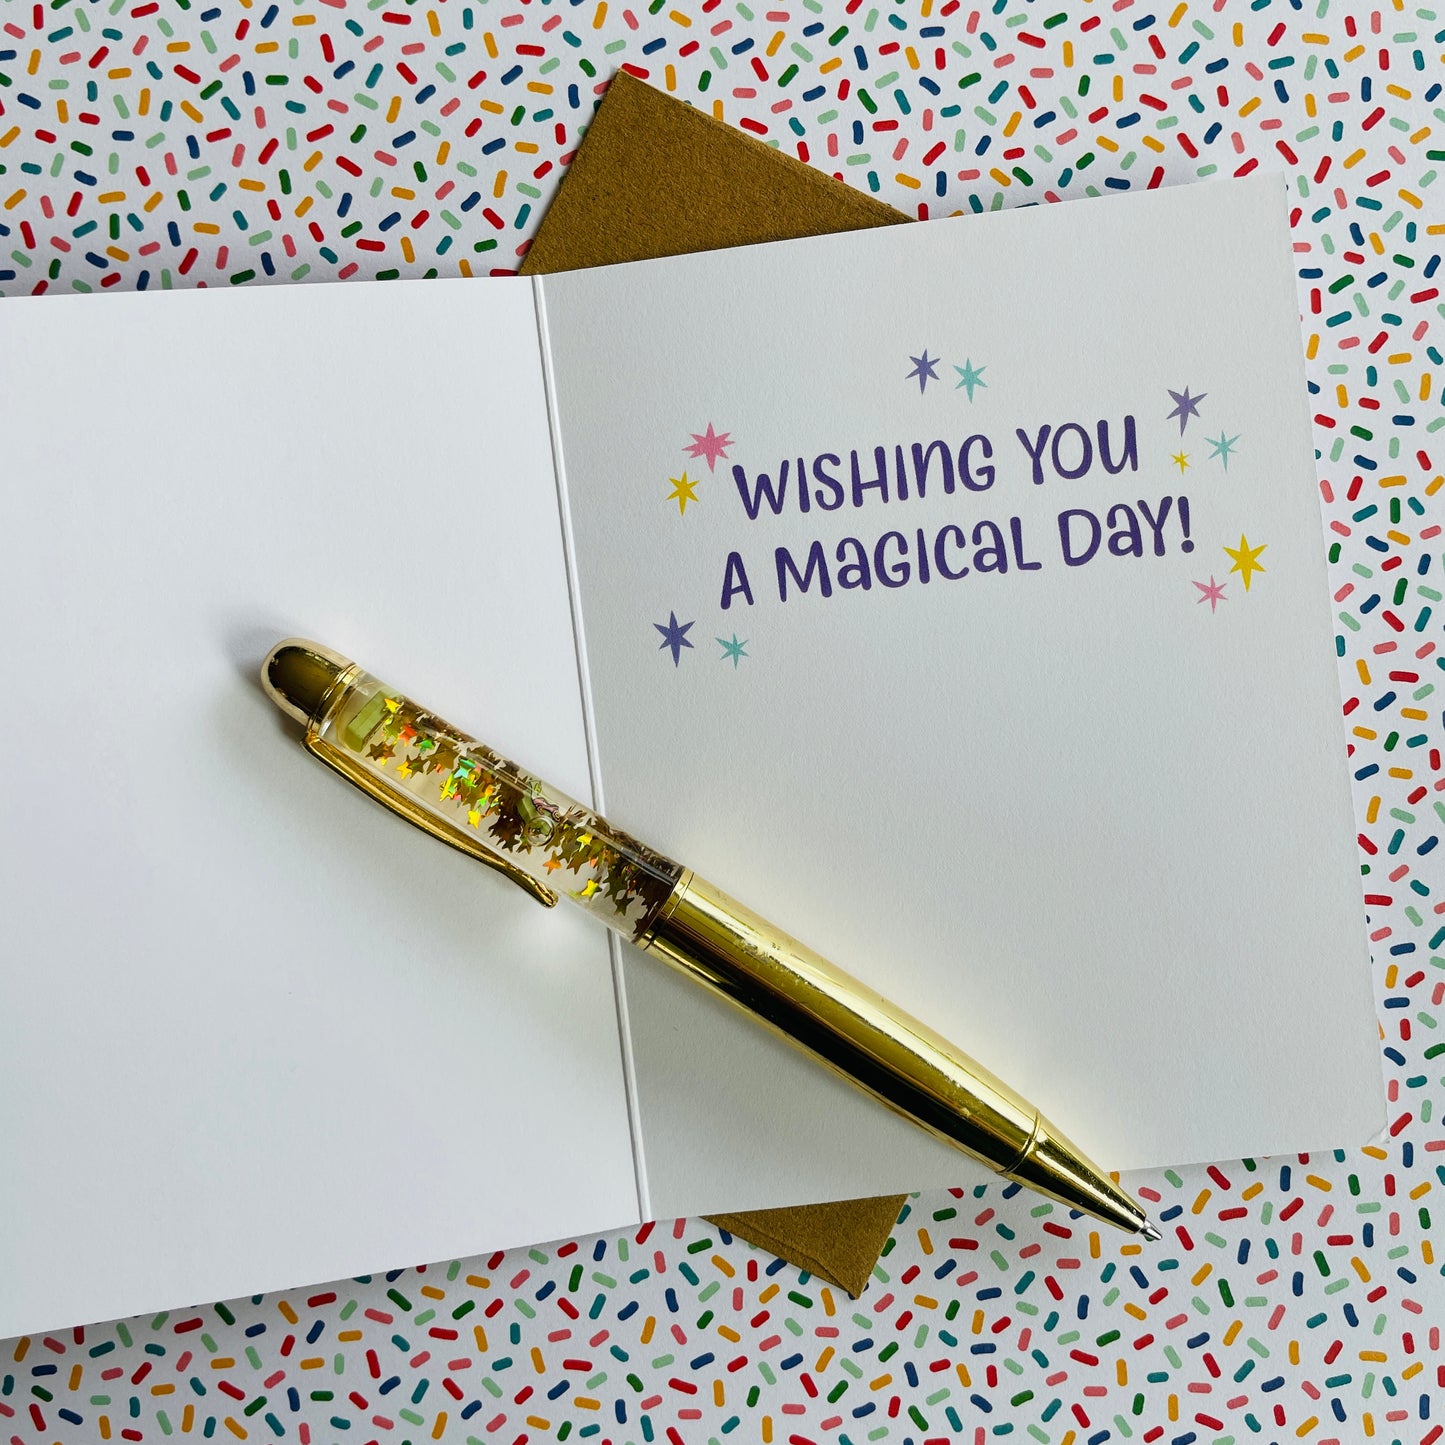 WISHING YOU
A MAGICAL DAY!